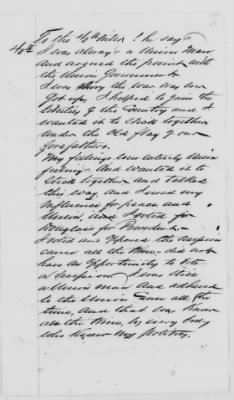 To the 40th Inter he says
40th I was always a Union Man
and argued the point with
the Union Government
I was sorry the war was ever
got up, I helped to gain the
of the Country and I
wanted it to stick together
under the Old flag of our
forefathers.
My feelings was entirely Union
feeling. And wanted it to
stick together and talked
this way and used my
Influence for peace and
Union. And I voted for
Douglass for President.
I voted and opposed the
cause all the time. did not
have an Opportunity to vote
I was still
a Union man and adhered
to the Union cause all the
time, and that was known
all the time, by every body
who knew my politics.